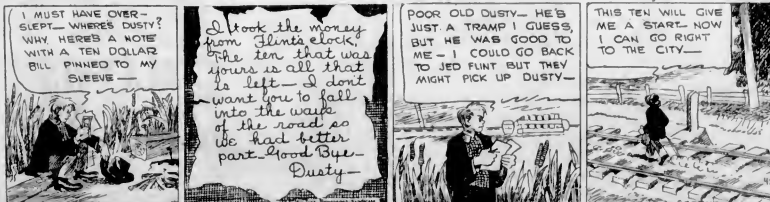 I MUST HAVE OVER-
SLEPT— WHERE'S DUSTY?
WHY, HERE'S A NOTE
WITH A TEN DOLLAR
BILL PINNED TO MY
SLEEVE—
I took the money
from Flint's clock,
The ten that was
yours is all that
is left— I don't
want you to fall
into the ways
of the road so
we had better
part— Good Bye—
Dusty—
POOR OLD DUSTY— HE'S
JUST A TRAMP I GUESS,
BUT HE WAS GOOD TO
ME— I COULD GO BACK
TO JED FLINT BUT THEY
MIGHT PICK UP DUSTY—
THIS TEN WILL GIVE
ME A START— NOW
I CAN GO RIGHT
TO THE CITY—